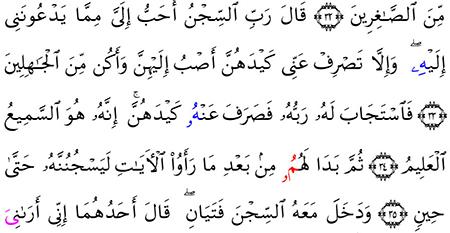 مِّنَ ٱلصَّٰغِرِينَ ۝٣٢ قَالَ رَبِّ ٱلسِّجْنُ أَحَبُّ إِلَىَّ مِمَّا يَدْعُونَنِى
إِلَيْهِۦ ۖ وَإِلَّا تَصْرِفْ عَنِّى كَيْدَهُنَّ أَصْبُ إِلَيْهِنَّ وَأَكُن مِّنَ ٱلْجَٰهِلِينَ
۝٣٣ فَٱسْتَجَابَ لَهُۥ رَبُّهُۥ فَصَرَفَ عَنْهُۥ كَيْدَهُنَّ ۚ إِنَّهُۥ هُوَ ٱلسَّمِيعُ
ٱلْعَلِيمُ ۝٣٤ ثُمَّ بَدَا لَهُمُۥ مِنۢ بَعْدِ مَا رَأَوُا۟ ٱلْأٓيَٰتِ لَيَسْجُنُنَّهُۥ حَتَّىٰ
حِينٍ ۝٣٥ وَدَخَلَ مَعَهُ ٱلسِّجْنَ فَتَيَانِ ۖ قَالَ أَحَدُهُمَا إِنِّى أَرَىٰنِىَ